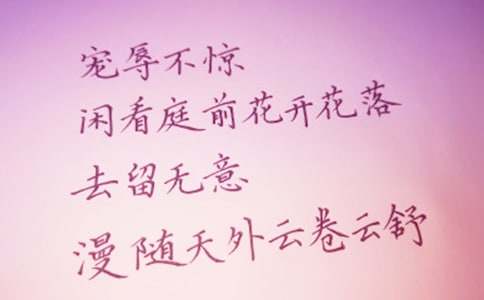 宠辱不惊
闲看庭前花开花落
去留无意
漫随天外云卷云舒